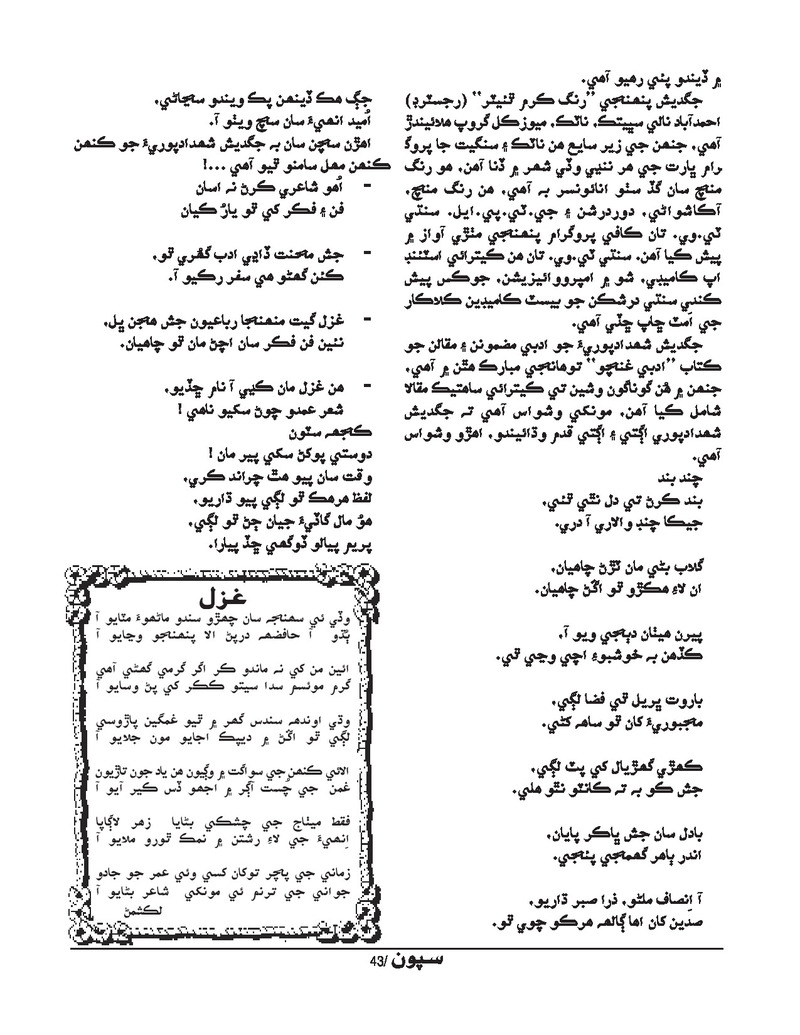 ۾ ڏيندو پئي رهيو آهي.
جڳديش پنهنجي ”رنگ ڪرم ٿئيٽر“ (رجسٽرڊ)
احمدآباد نالي سڀيتڪ، ناٽڪ، ميوزڪل گروپ هلائيندڙ
آهي، جنهن جي زير سايع هن ناٽڪ ۽ سنگيت جا پروگ
رام ڀارت جي هر ننڍي وڏي شهر ۾ ڏنا آهن، هو رنگ
منچ سان گڏ سٺو انائونسر به آهي، هن رنگ منچ،
آڪاشواڻي، دوردرشن ۽ جي.ٽي.پي.ايل. سنڌي
ٽي.وي. تان ڪافي پروگرام پنهنجي مٺڙي آواز ۾
پيش ڪيا آهن. سنڌي ٽي.وي. تان هن ڪيترائي اسٽئنڊ
اپ ڪاميڊي، شو ۾ امپرووائيزيشن، جوڪس پيش
ڪندي سنڌي درشڪن جو بيسٽ ڪاميڊين ڪلاڪار
جي اَمٽ ڇاپ ڇڏي آهي.
جڳديش شهدادپوريءَ جو ادبي مضمونن ۽ مقالن جو
ڪتاب ”ادبي غنچو“ توهانجي مبارڪ هٿن ۾ آهي،
جنهن ۾ هُن گوناگون وشين تي ڪيترائي ساهتيڪ مقالا
شامل ڪيا آهن، مونکي وشواس آهي ته جڳديش
شهدادپوري اڳتي ۽ اڳتي قدم وڌائيندو، اهڙو وشواس
آهي.
چند بند
بند ڪرڻ تي دل نٿي ٿئي،
جيڪا چنڊ والاري آ دري.
گلاب بڻي مان ٽڙڻ چاهيان،
ان لاءِ هڪڙو ٿو اڱڻ چاهيان.
پيرن هيٺان دٻجي ويو آ،
ڪڏهن به خوشبوءِ اچي وڃي ٿي.
باروت ڀريل ٿي فضا لڳي،
مجبوريءَ کان ٿو ساهه کڻي.
ڪهڙي گهڙيال کي پٽ لڳي،
جش ڪو به ته ڪانٽو نٿو هلي.
بادل سان جش ڀاڪر پايان،
اندر ٻاهر گهمجي پئجي.
آ اِنصاف ملڻو، ذرا صبر ڌاريو،
صدين کان اها ڳالهه هرڪو چوي ٿو.
جڳ هڪ ڏينهن پڪ ويندو سڃاڻي،
اُميد انهيءَ سان سچ ويٺو آ.
اهڙن سچن سان به جڳديش شهدادپوريءَ جو ڪنهن
ڪنهن مهل سامنو ٿيو آهي ...!
- اُهو شاعري ڪرڻ نه اسان
فن ۽ فڪر کي ٿو يارُ ڪيان
- جش محنت ڏاڍي ادب گهري ٿو،
ڪٺن گهڻو هي سفر رکيو آ.
- غزل گيت منهنجا رباعيون جش هجن ڀل،
نئين فن فڪر سان اچڻ مان ٿو چاهيان.
- هن غزل مان ڪڍي آ نام ڇڏيو،
شعر عمدو چوڻ سکيو ناهي !
ڪجهه سٽون
دوستي پوکڻ سکي پير مان !
وقت سان پيو هٿ چراند ڪري،
لفظ هرهڪ ٿو لڳي پيو ڌاريو،
هؤ مال گاڏيءَ جيان ڄڻ ٿو لڳي،
پريم پيالو ڏوگهي ڇڏ پيارا.
غزل
وڏي ئي سهنجه سان چهڙو سندو ماڻهوءَ مٽايو آ
ٻُڌو آ حافضهه درپڻ الا پنهنجو وڃايو آ
ائين من کي نه ماندو ڪر اگر گرمي گهڻي آهي
گرم موئسم سدا سيتو ڪڪر کي پڻ وسايو آ
وڌي اوندهه سندس گهر ۾ ٿيو غمگين پاڙوسي
لڳي ٿو اڱڻ ۾ ديپڪ اجايو مون جلايو آ
الائي ڪنهن جي سواگت ۾ وڳيون هن ياد جون تاڙيون
غمن جي چُست آڳر ۾ اجهو ڏس ڪير آيو آ
فقط ميٺاج جي چشڪي بڻايا زهر لاڳاپا
اِنهيءَ جي لاءِ رشتن ۾ نمڪ ٿورو ملايو آ
زماني جي پڇر توکان کسي وئي عمر جو جادو
جواني جي ترنم ئي مونکي شاعر بڻايو آ
لڪشمڻ
سپون /43